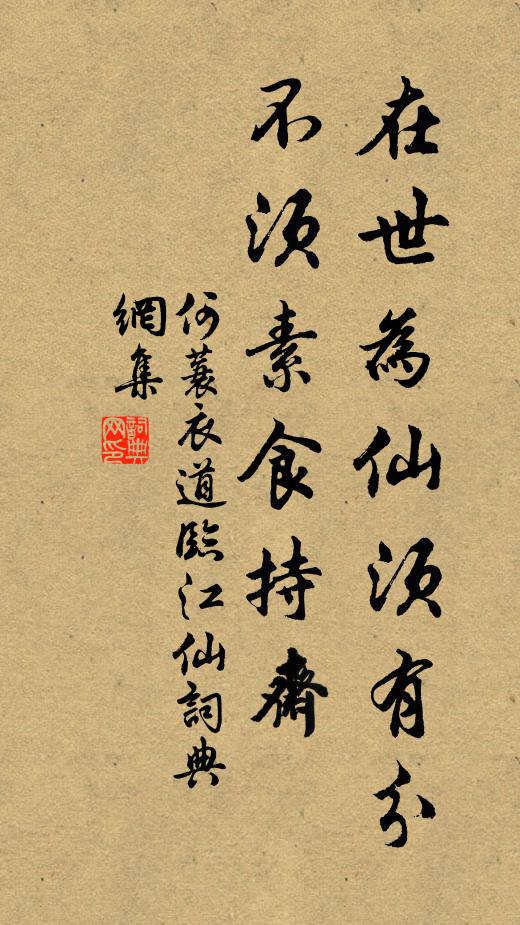 在世為仙須有分
不須素食持齋
何蓑衣道臨江仙詞典
網集
詞典
网印